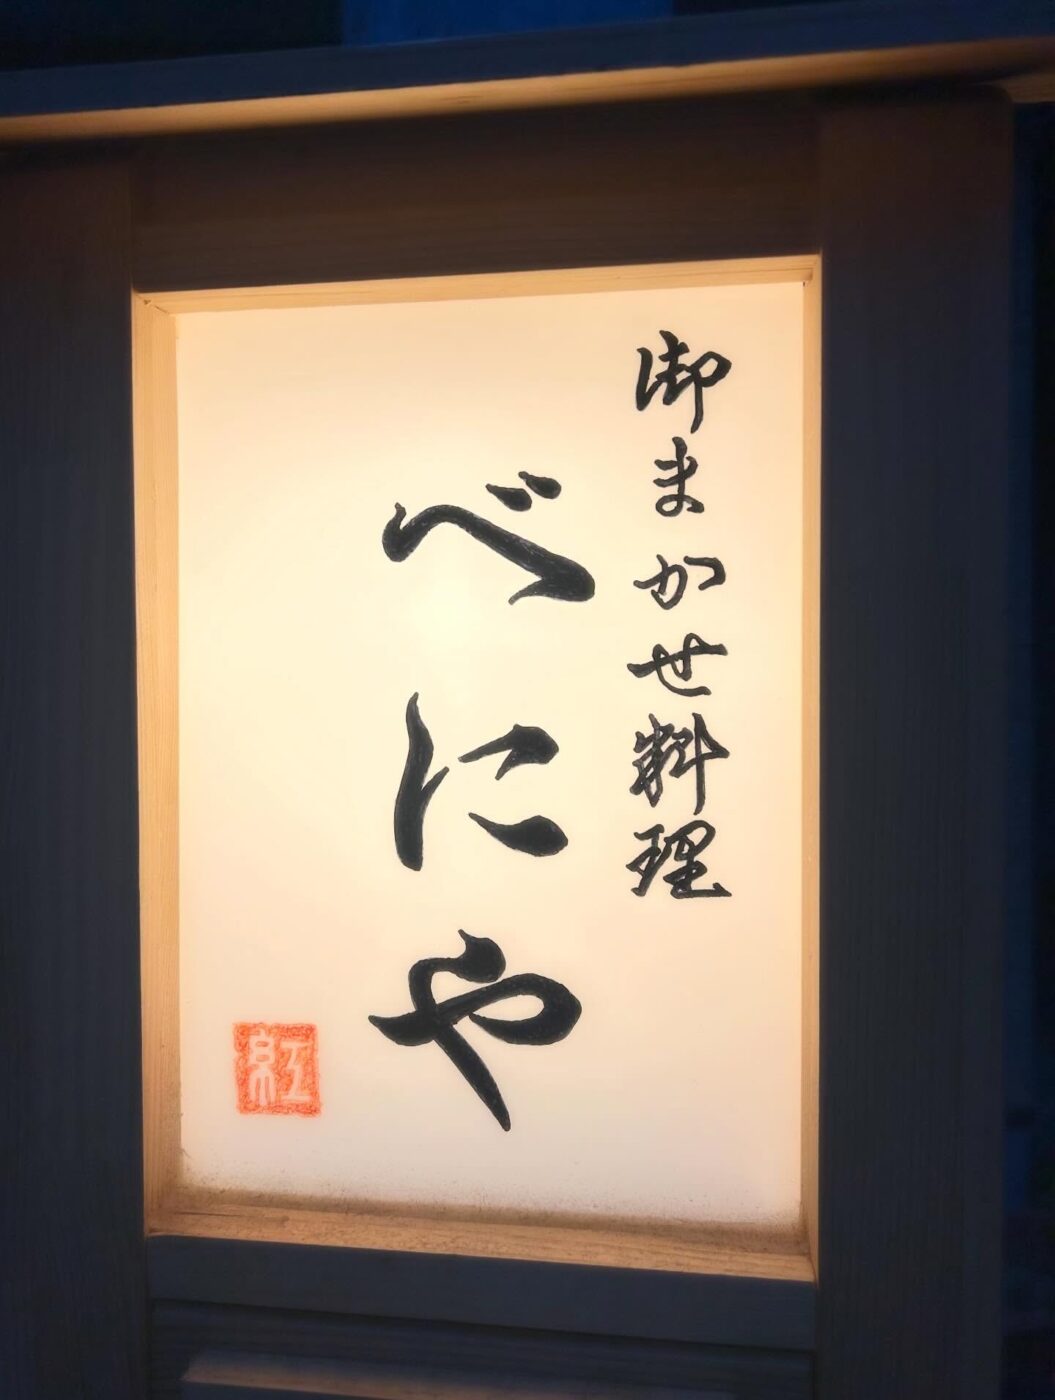 御まかせ料理
べにや
紅